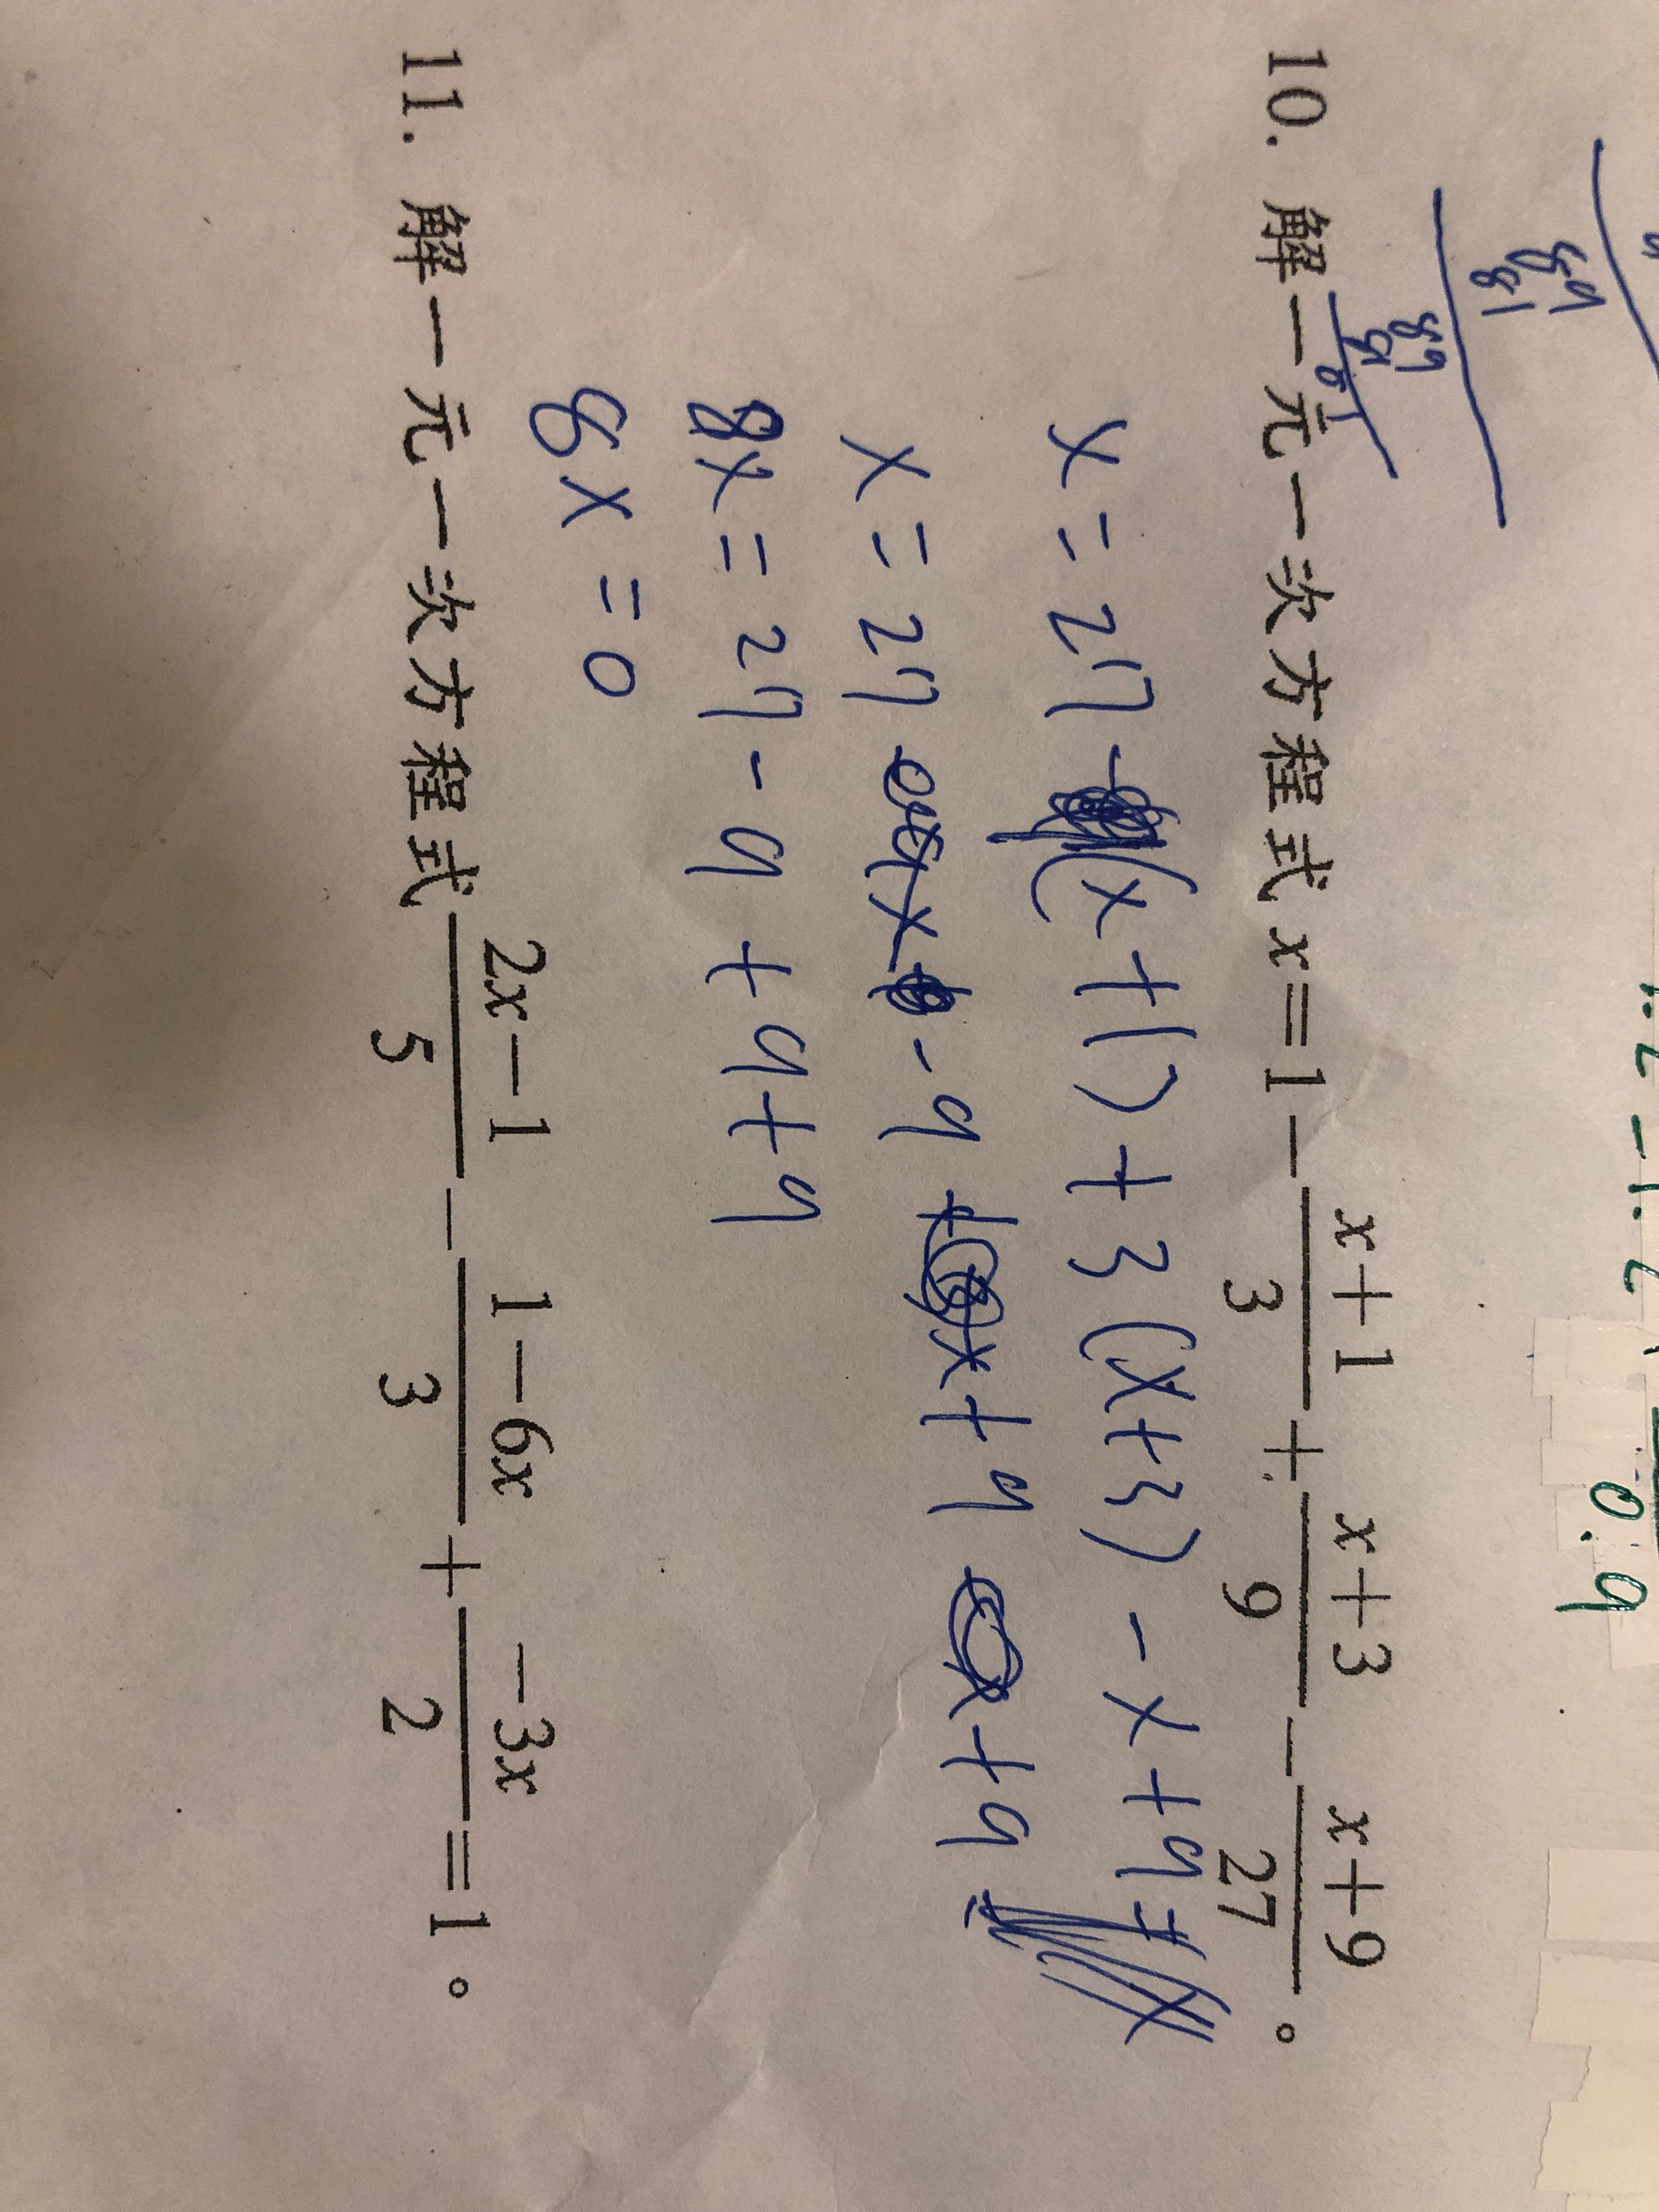 0.9
89
81
89
81
81
10. 解一元一次方程式 x=1-\frac{x+1}{3}+\frac{x+3}{9}-\frac{x+9}{27}。
x = 27 - (x+1) + 3(x+3) - x+9
x = 27 x - 9 + x+9 x+9
8x = 27 - 9 + 9 + 9
8x = 0
11. 解一元一次方程式 \frac{2x-1}{5}-\frac{1-6x}{3}+\frac{-3x}{2}=1。